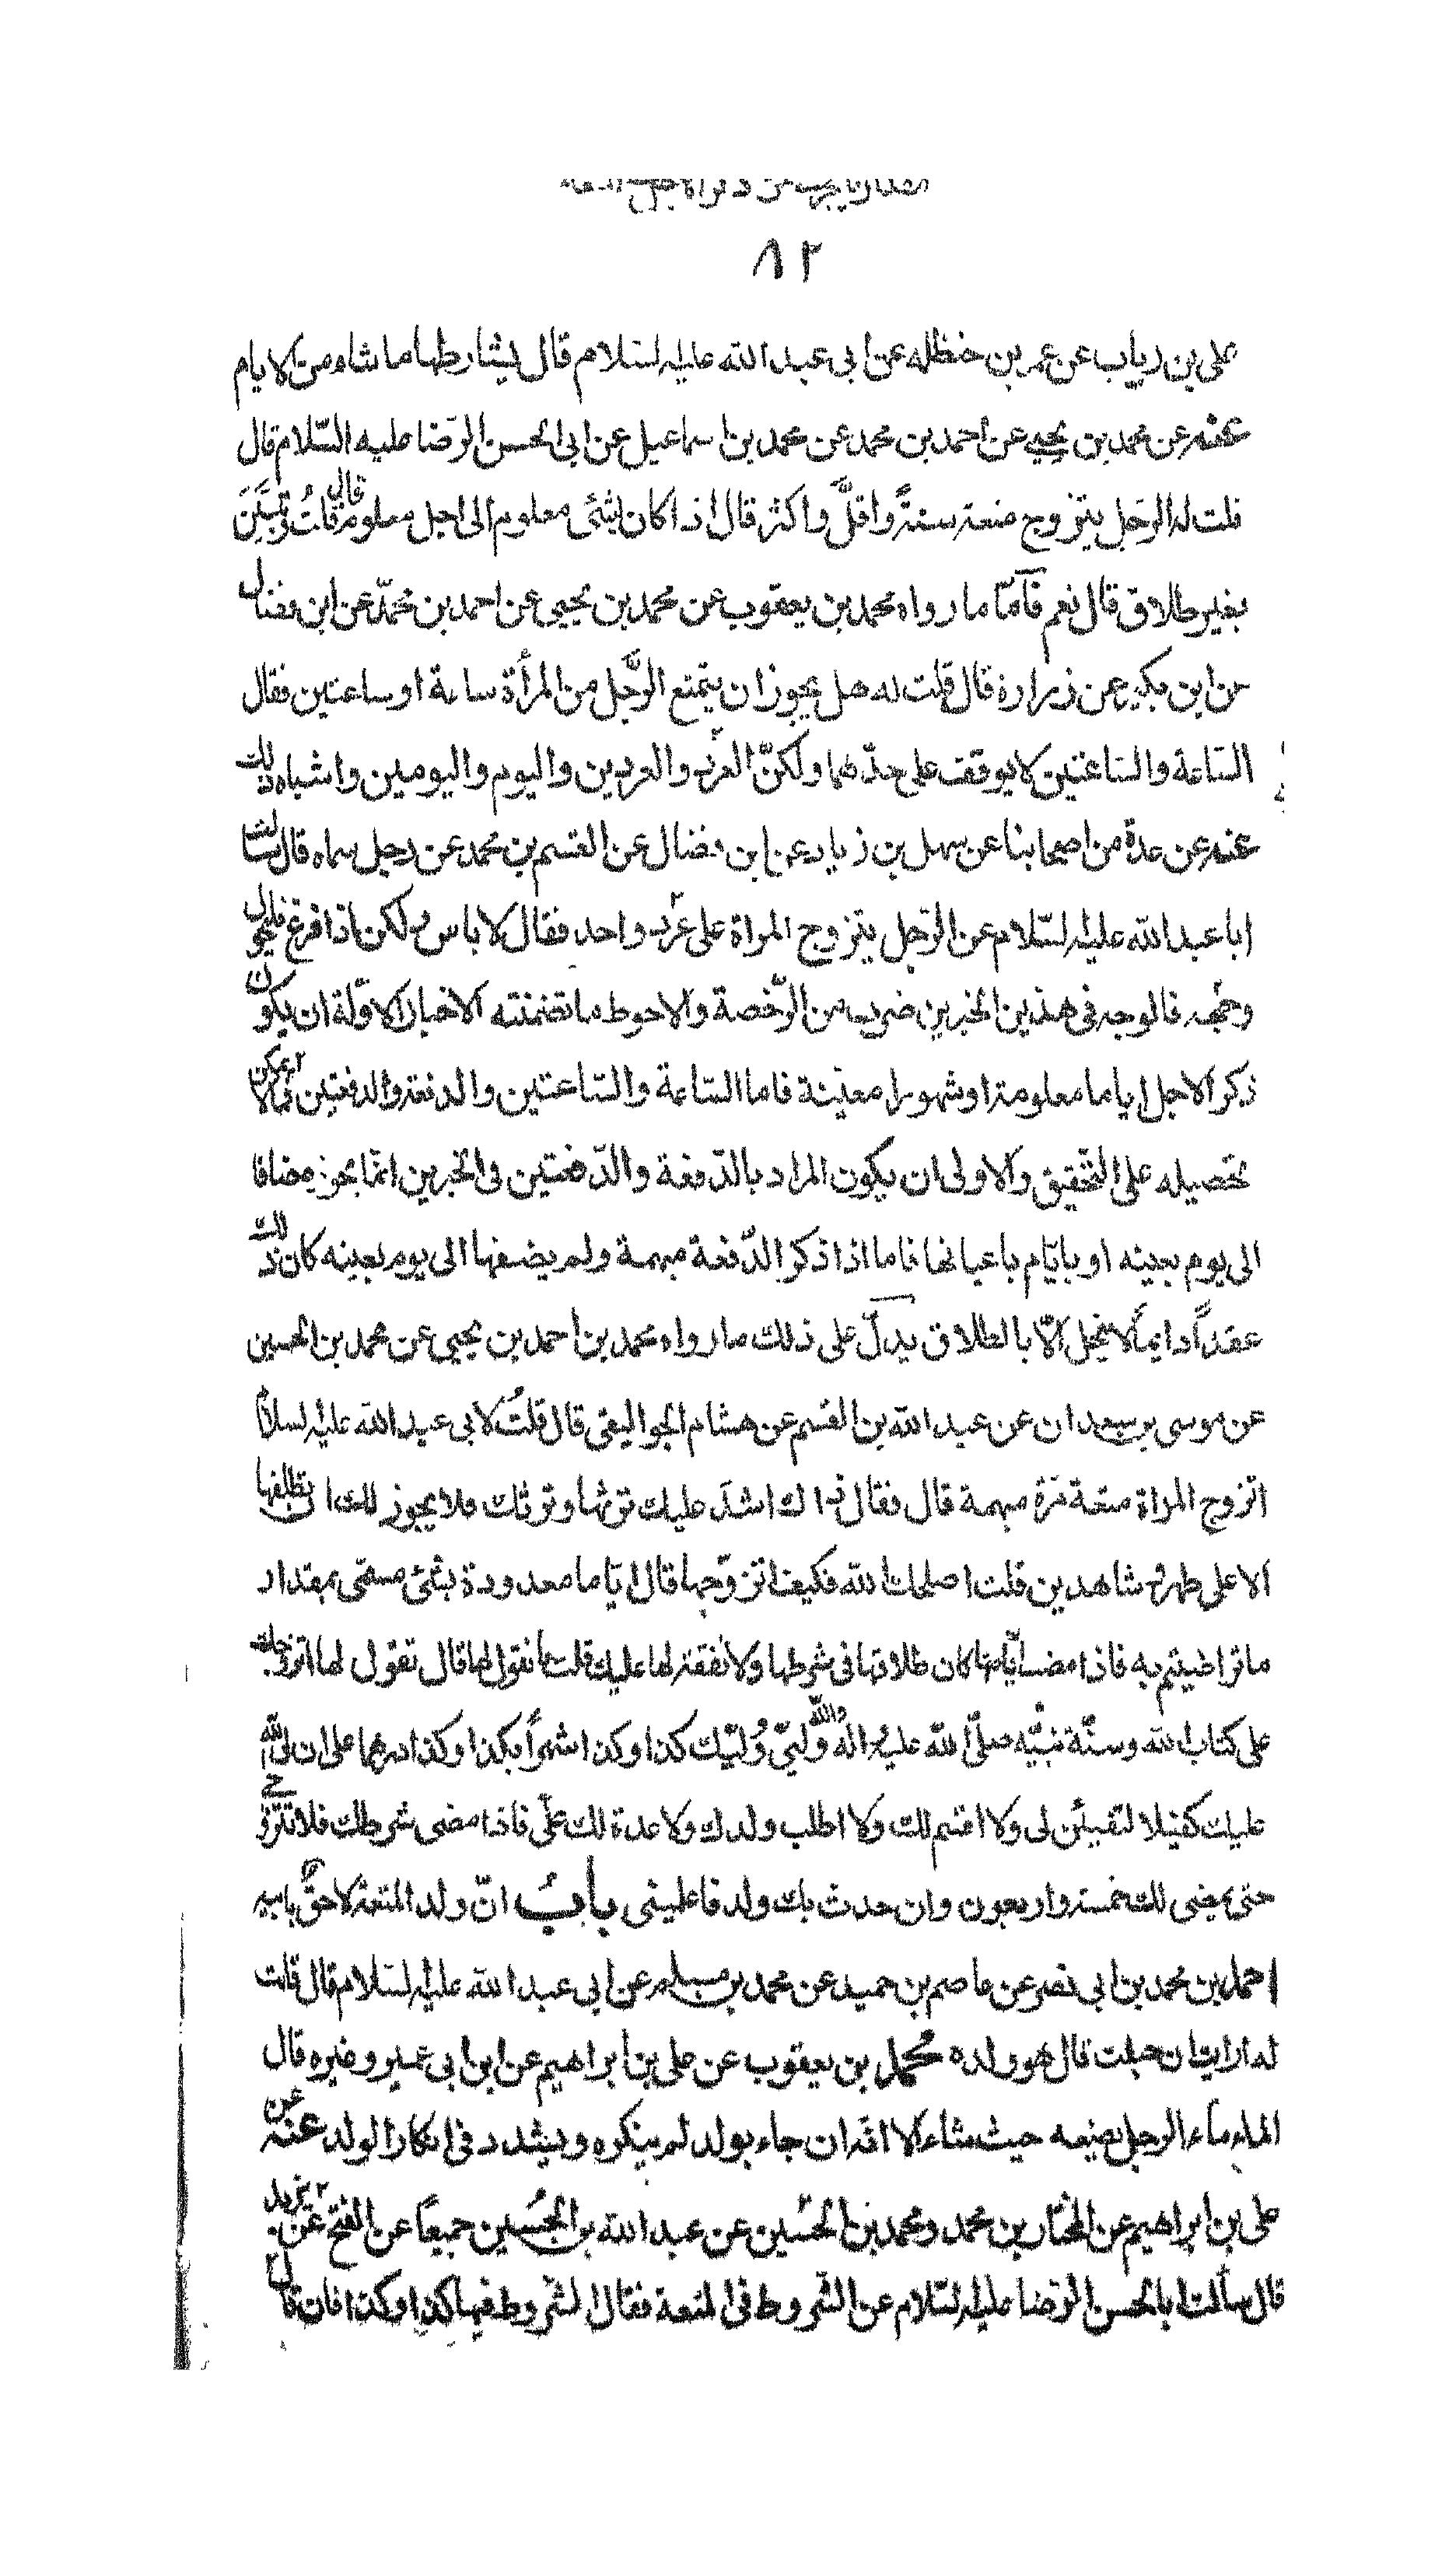 مقدار ما يجزى من ذكر الاجل
٨٢
على بن رياب عن عمر بن حنظله عن ابى عبد الله عليه السلام قال يشارطها ما شاء من الايام
عنه عن محمد بن يحيى عن احمد بن محمد عن محمد بن اسماعيل عن ابى الحسن الرضا عليه السّلام قال
قلت له الرجل يتزوج متعة سنةً واقلّ واكثر قال اذا كان بشئ معلوم الى اجل معلوم قال قلتُ وتبينَ
بغير طلاق قال نعم فامّا ما رواه محمد بن يعقوب عن محمد بن يحيى عن احمد بن محمّد عن ابن فضال
عن ابن بكير عن زرارة قال قلت له هل يجوز ان يتمتع الرّجل من المرأة ساعة او ساعتين فقال
السّاعة والساعتين لا يوقف على حدّهما ولكنّ العرد والعردين واليوم واليومين واشباه ذلك
عنه عن عدة من اصحابنا عن سهل بن زياد عن ابن فضال عن القسم بن محمد عن رجل سماه قال سالت
ابا عبد الله عليه السّلام عن الرّجل يتزوج المراة على عرد واحد فقال لا باس ولكن اذا فرغ فليحول
وجهه فالوجه فى هذين الخبرين ضرب من الرّخصة والاحوط ما تضمنته الاخبار الاوّلة ان يكون
ذكر الاجل اياما معلومة او شهورا معيّنة فاما السّاعة والسّاعتين والدفعة والدفعتين فمما لا يمكن
تحصيله على التّحقيق والاولى ان يكون المراد بالدّفعة والدّفعتين فى الخبرين انّما يجوز مضافا
الى يوم بعينه او بايّام باعيانها فاما اذا ذكر الدّفعة مبهمة ولم يضفها الى يوم بعينه كان ذلك
عقداً دايماً لا ينحل الّا بالطلاق يدلّ على ذلك ما رواه محمد بن احمد بن يحيى عن محمد بن الحسين
عن موسى بن سعدان عن عبد الله بن القسم عن هشام الجواليقى قال قلتُ لابى عبد الله عليه السلام
اتزوج المراة متعة مرّة مبهمة قال فقال ذاك اشدّ عليك ترثها وترثك فلا يجوز لك ان تطلقها
الا على طهر وشاهدين قلت اصلحك الله فكيف اتزوّجها قال ايّاما معدودة بشئ مسمّى بمقدار
ما تراضيتم به فاذا مضت ايّامها كان طلاقها فى شرطها ولا نفقة لها عليك قلت ما نقول لها قال تقول لها اتزوجك
على كتاب الله وسنّة نبيّه صلّى الله عليه واله والله ولىّ ووليّك كذا وكذا شهراً بكذا وكذا درهما على ان لى الله
عليك كفيلا لتفينّ لى ولا اقسم لك ولا اطلب ولدك ولا عدة لك علّى فاذا مضى شرطك فلا تتزوجى
حتى يمضى لك خمسة واربعون وان حدث بك ولد فاعلمينى بابُ انّ ولد المتعة لاحقٌ بابيه
احمد بن محمد بن ابى نصر عن عاصم بن حميد عن محمد بن مسلم عن ابى عبد الله عليه السّلام قال قلت
له ارايت ان حبلت قال هو ولده محمد بن يعقوب عن على بن ابراهيم عن ابن ابى عمير وغيره قال
الماء ماء الرجل يضعه حيث شاء الا انّه ان جاء بولد لم ينكره ويشدد فى انكار الولد عنه عن
على بن ابراهيم عن المختار بن محمد ومحمد بن الحسين عن عبد الله بن الحسين جميعاً عن الفتح عن يزيد
قال سالت ابا الحسن الرّضا عليه السّلام عن الشّروط فى المتعة فقال الشّروط فيها كذا وكذا فان قال